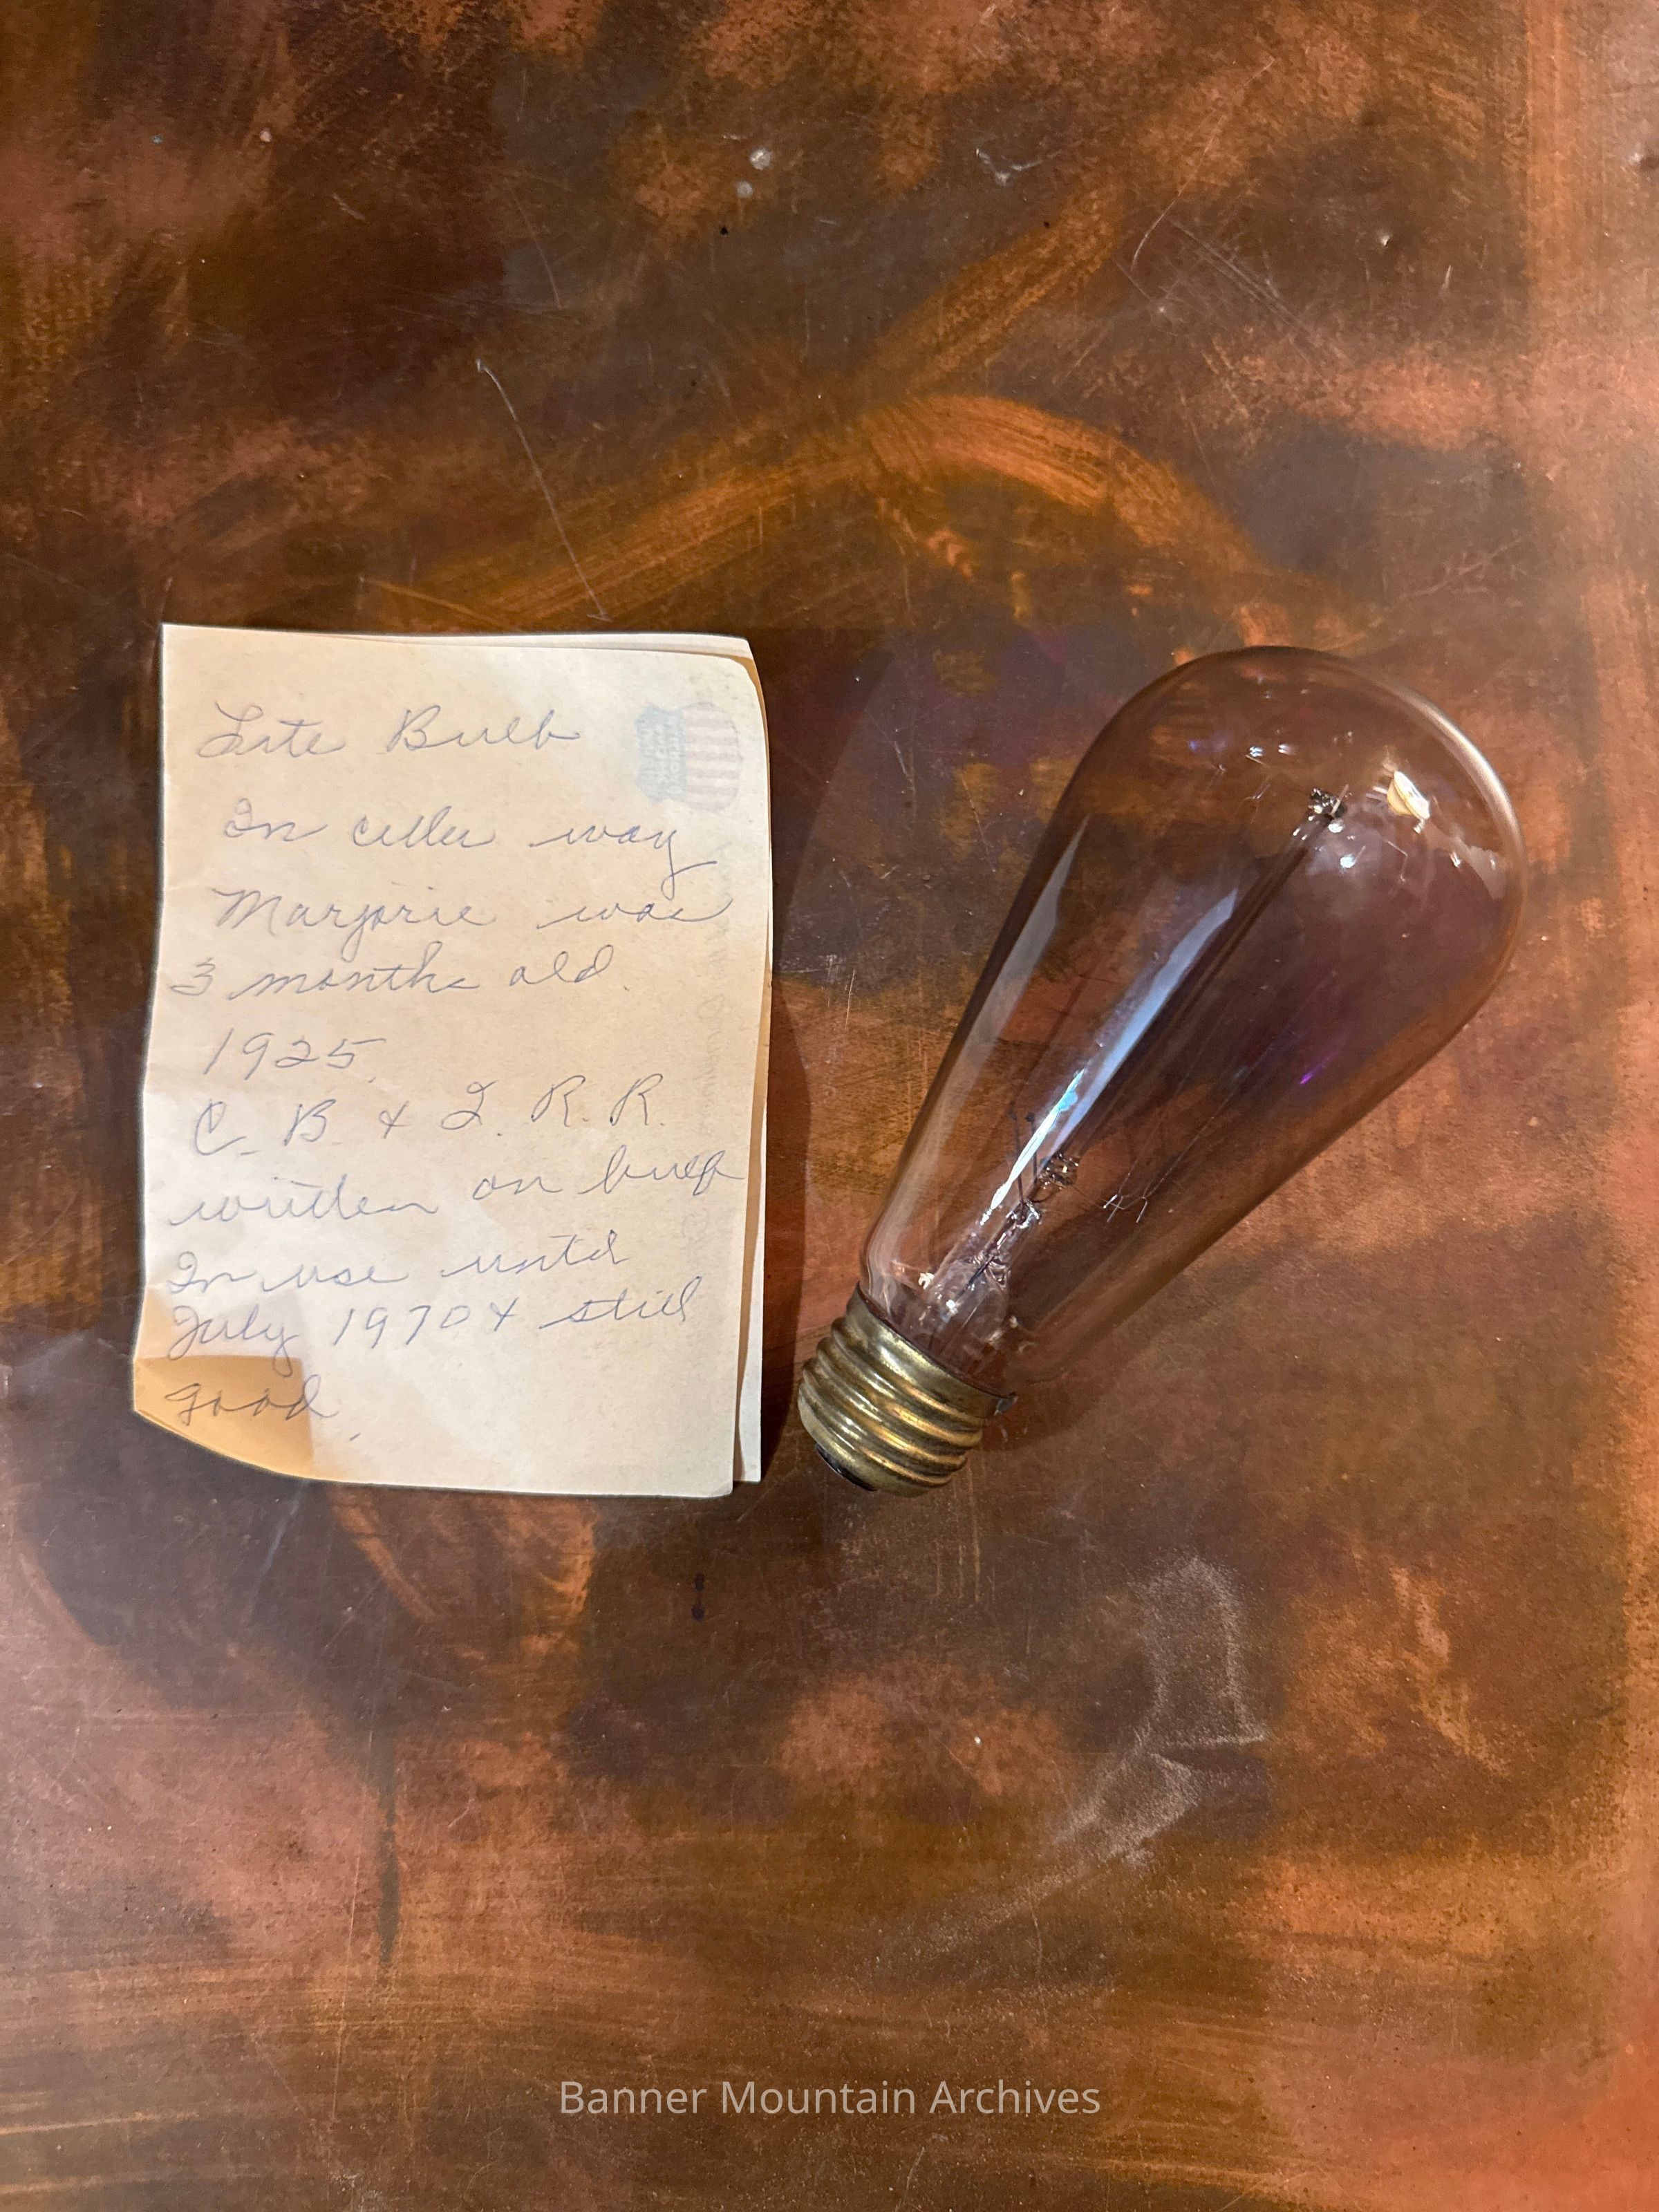 Lite Bulb
In celler way
Marjorie was
3 months old.
1925.
C. B. & Q. R. R.
written on bulb
In use until
July 1970 & still
good.
Banner Mountain Archives